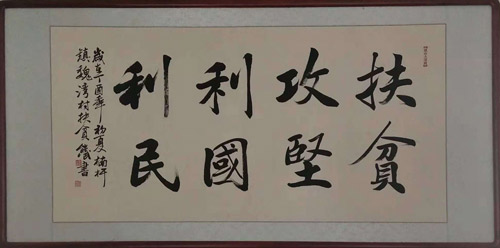 扶貧
攻堅
利國
利民
歲在丁酉年初夏楠杆
鎮魏灣村扶貧
書